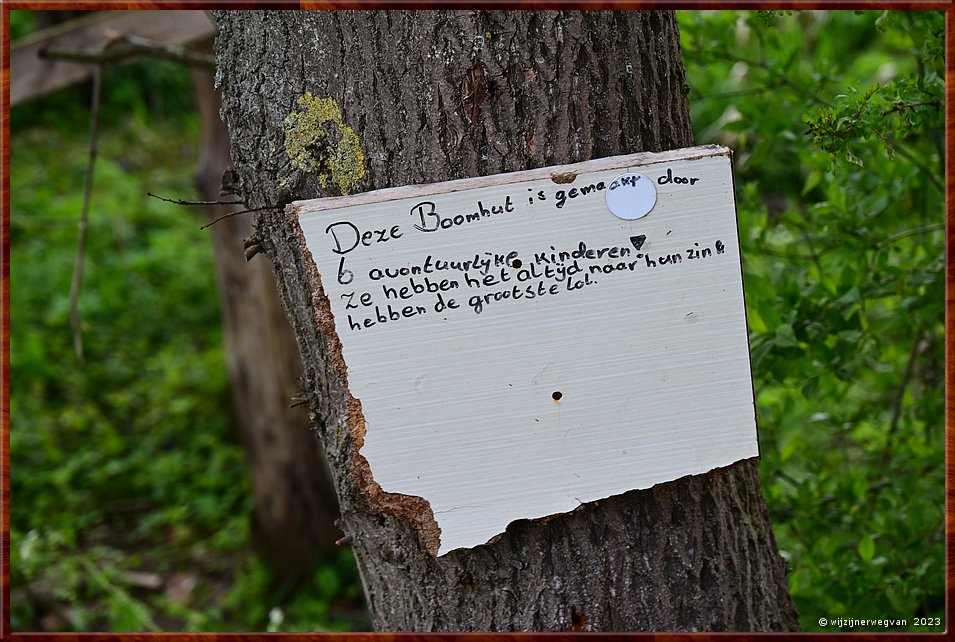 Deze Boomhut is gemaakt door
6 avontuurlyke kinderen
ze hebben het altyd naar hun zin &
hebben de grootste lol.
© wijzijnerwegvan 2023